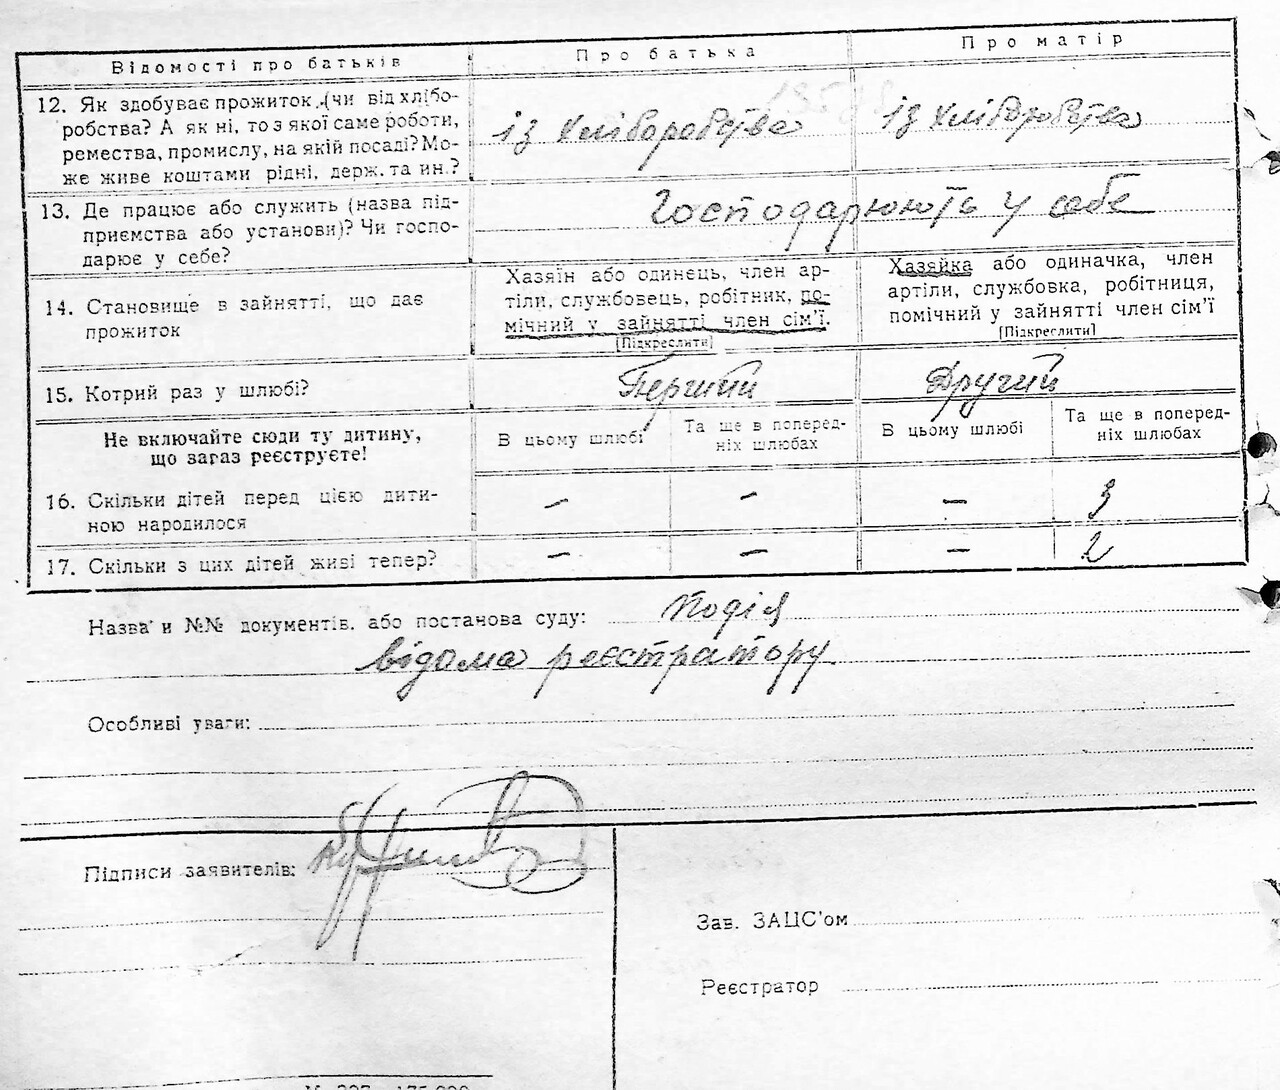 Відомості про батьків
Про батька
Про матір
12. Як здобуває прожиток (чи від хлібо-
робства? А як ні, то з якої саме роботи,
ремества, промислу, на якій посаді? Мо-
же живе коштами рідні, держ. та ин.?
із хліборобства
із хліборобства
13. Де працює або служить (назва під-
приємства або установи)? Чи госпо-
дарює у себе?
Господарюють у себе
14. Становище в зайнятті, що дає
прожиток
Хазяїн або одинець, член ар-
тіли, службовець, робітник, по-
мічний у зайнятті член сім'ї.
[Підкреслити]
Хазяйка або одиначка, член
артіли, службовка, робітниця,
помічний у зайнятті член сім'ї
[Підкреслити]
15. Котрий раз у шлюбі?
Перший
Другий
Не включайте сюди ту дитину,
що зараз реєструєте!
В цьому шлюбі
Та ще в поперед-
ніх шлюбах
В цьому шлюбі
Та ще в поперед-
ніх шлюбах
16. Скільки дітей перед цією дити-
ною народилося
— — — 3
17. Скільки з цих дітей живі тепер?
— — — 2
Назва и №№ документів. або постанова суду: Подія
відома реєстратору
Особливі уваги:
Підписи заявителів:
Зав. ЗАЦС'ом
Реєстратор